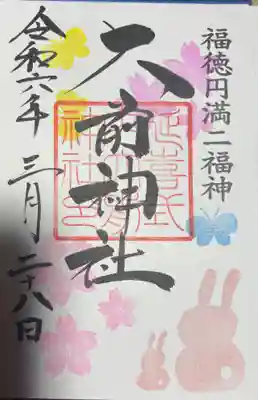 福徳円満二福神
大前神社
延喜式
令和六年 三月二十八日